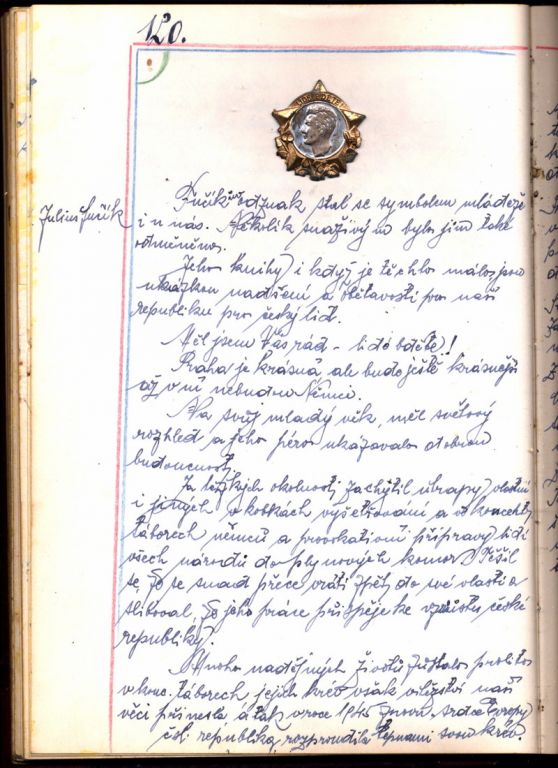 120.
LIDÉ BDĚTE!
Julius Fučík
Fučíkův odznak stal se symbolem mládeže
i u nás. Několik snaživých bylo jím také
odměněno.
Jeho knihy i když je těchto málo, jsou
ukázkou nadšení a obětavosti pro naši
republiku pro český lid.
Měl jsem Vás rád - lidé bděte!
Praha je krásná ale bude ještě krásnější
až v ní nebudou Němci.
Na svůj mladý věk, měl světový
rozhled a jeho péro ukazovalo dobrou
budoucnost.
Za těžkých okolností zachytil útrapy vlastní
i jiných v kobkách vyšetřování a v koncentr.
táborech němců a přípravy lidí
všech národů do plynových komor. Těšil
se, že se snad přece vrátí zpět do své vlasti a
sliboval, že jeho práce přispěje ke vzrůstu české
republiky.
Mnoho nadějných životů zůstalo prolito
v konc. táborech jejich krev však vítězství naší
věci přinesla, a tak v roce 1945 znovu srdce Evropy
čsl. republika rozproudila tepnami svou krev.